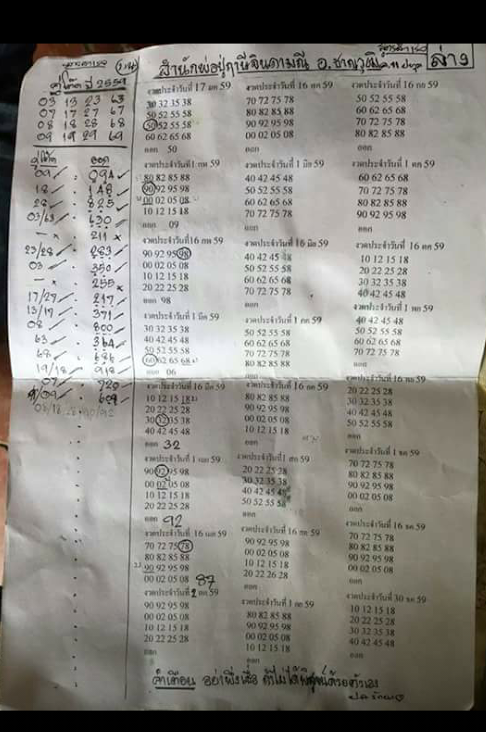 สำนักพ่อปู่ฤาษีจินดามณี อ.ชาญวุฒิ
ล่าง
ปี 2559
03 13 23 63
07 17 27 67
08 18 28 68
09 19 29 69
09 . 094
18 . 148
28 . 825
03/63 . 630
- x . 211 x
23/28 . 283
03 . 350
- x . 255 x
17/27 . 217
13/17 . 371
08 . 800
63 . 364
68 . 686
19/18 . 918
07 . 720
งวดประจำวันที่ 17 มค 59
30 32 35 38
50 52 55 58
50 52 55 58
60 62 65 68
ออก 50
งวดประจำวันที่1 กพ 59
80 82 85 88
90 92 95 98
00 02 05 08
10 12 15 18
ออก 09
งวดประจำวันที่16 กพ 59
90 92 95 98
00 02 05 08
10 12 15 18
20 22 25 28
ออก 98
งวดประจำวันที่1 มีค 59
30 32 35 38
40 42 45 48
50 52 55 58
60 62 65 68
ออก 06
งวดประจำวันที่ 16 มีค 59
10 12 15 18
20 22 25 28
30 32 35 38
40 42 45 48
ออก 32
งวดประจำวันที่1 เมย 59
90 92 95 98
00 02 05 08
10 12 15 18
20 22 25 28
ออก 92
งวดประจำวันที่ 16 เมย 59
70 72 75 78
80 82 85 88
90 92 95 98
00 02 05 08 87
งวดประจำวันที่ 2 พค 59
90 92 95 98
00 02 05 08
10 12 15 18
20 22 25 28
ออก
งวดประจำวันที่ 16 พค 59
70 72 75 78
80 82 85 88
90 92 95 98
00 02 05 08
ออก
งวดประจำวันที่ 1 มิย 59
40 42 45 48
50 52 55 58
60 62 65 68
70 72 75 78
ออก
งวดประจำวันที่ 16 มิย 59
40 42 45 48
50 52 55 58
60 62 65 68
70 72 75 78
ออก
งวดประจำวันที่ 1 กค 59
50 52 55 58
60 62 65 68
70 72 75 78
80 82 85 88
ออก
งวดประจำวันที่ 16 กค 59
80 82 85 88
90 92 95 98
00 02 05 08
10 12 15 18
ออก
งวดประจำวันที่1 สค 59
20 22 25 28
30 32 35 38
40 42 45 48
50 52 55 58
ออก
งวดประจำวันที่ 16 สค 59
90 92 95 98
00 02 05 08
10 12 15 18
20 22 26 28
ออก
งวดประจำวันที่ 1 กย 59
80 82 85 88
90 92 95 98
00 02 05 08
10 12 15 18
ออก
งวดประจำวันที่ 16 กย 59
50 52 55 58
60 62 65 68
70 72 75 78
80 82 85 88
ออก
งวดประจำวันที่ 1 ตค 59
60 62 65 68
70 72 75 78
80 82 85 88
90 92 95 98
ออก
งวดประจำวันที่ 16 ตค 59
10 12 15 18
20 22 25 28
30 32 35 38
40 42 45 48
ออก
งวดประจำวันที่ 1 พย 59
40 42 45 48
50 52 55 58
60 62 65 68
70 72 75 78
ออก
งวดประจำวันที่ 16 พย 59
20 22 25 28
30 32 35 38
40 42 45 48
50 52 55 58
ออก
งวดประจำวันที่ 1 ธค 59
70 72 75 78
80 82 85 88
90 92 95 98
00 02 05 08
ออก
งวดประจำวันที่ 16 ธค 59
70 72 75 78
80 82 85 88
90 92 95 98
00 02 05 08
ออก
งวดประจำวันที่ 30 ธค 59
10 12 15 18
20 22 25 28
30 32 35 38
40 42 45 48
ออก
คำเตือน อย่าพึ่งเชื่อ ถ้าไม่ได้พิสูจน์ด้วยตัวเอง